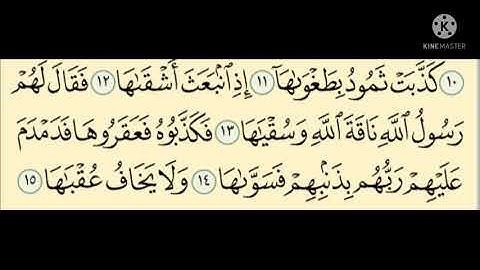 KINEMASTER
١٠ كَذَّبَتْ ثَمُودُ بِطَغْوَىٰهَآ ١١ إِذِ ٱنۢبَعَثَ أَشْقَىٰهَا ١٢ فَقَالَ لَهُمْ
رَسُولُ ٱللَّهِ نَاقَةَ ٱللَّهِ وَسُقْيَـٰهَا ١٣ فَكَذَّبُوهُ فَعَقَرُوهَا فَدَمْدَمَ
عَلَيْهِمْ رَبُّهُم بِذَنۢبِهِمْ فَسَوَّىٰهَا ١٤ وَلَا يَخَافُ عُقْبَـٰهَا ١٥